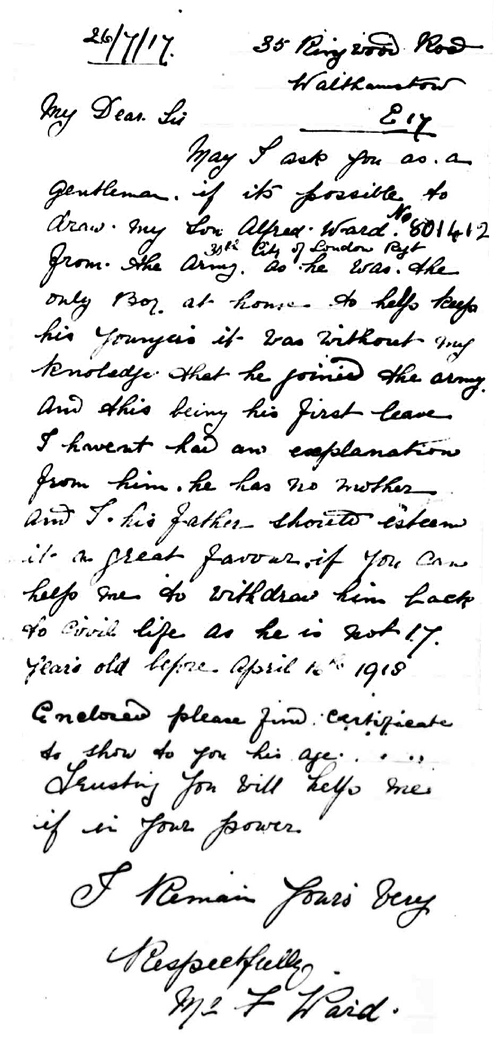 26/7/17. 35 Ringwood Road
Walthamstow
E17
My Dear Sir
May I ask you as a
gentleman. if its possible to
draw. my Son Alfred. Ward. No 801412
31st City of London Rgt
from. the Army. as he was. the
only Boy at home to help keep
his youngers it was without my
knoledge that he joined the army.
And this being his first leave
I havent had an explanation
from him. he has no mother
and I. his father should esteem
it a great favour. if you can
help me to withdraw him back
to Civil life as he is not 17.
years old before April 1918
Enclosed please find certificate
to show to you his age. . . .
Trusting you will help me
if in your power
I Remain Yours Very
Respectfully.
Mr F Ward.